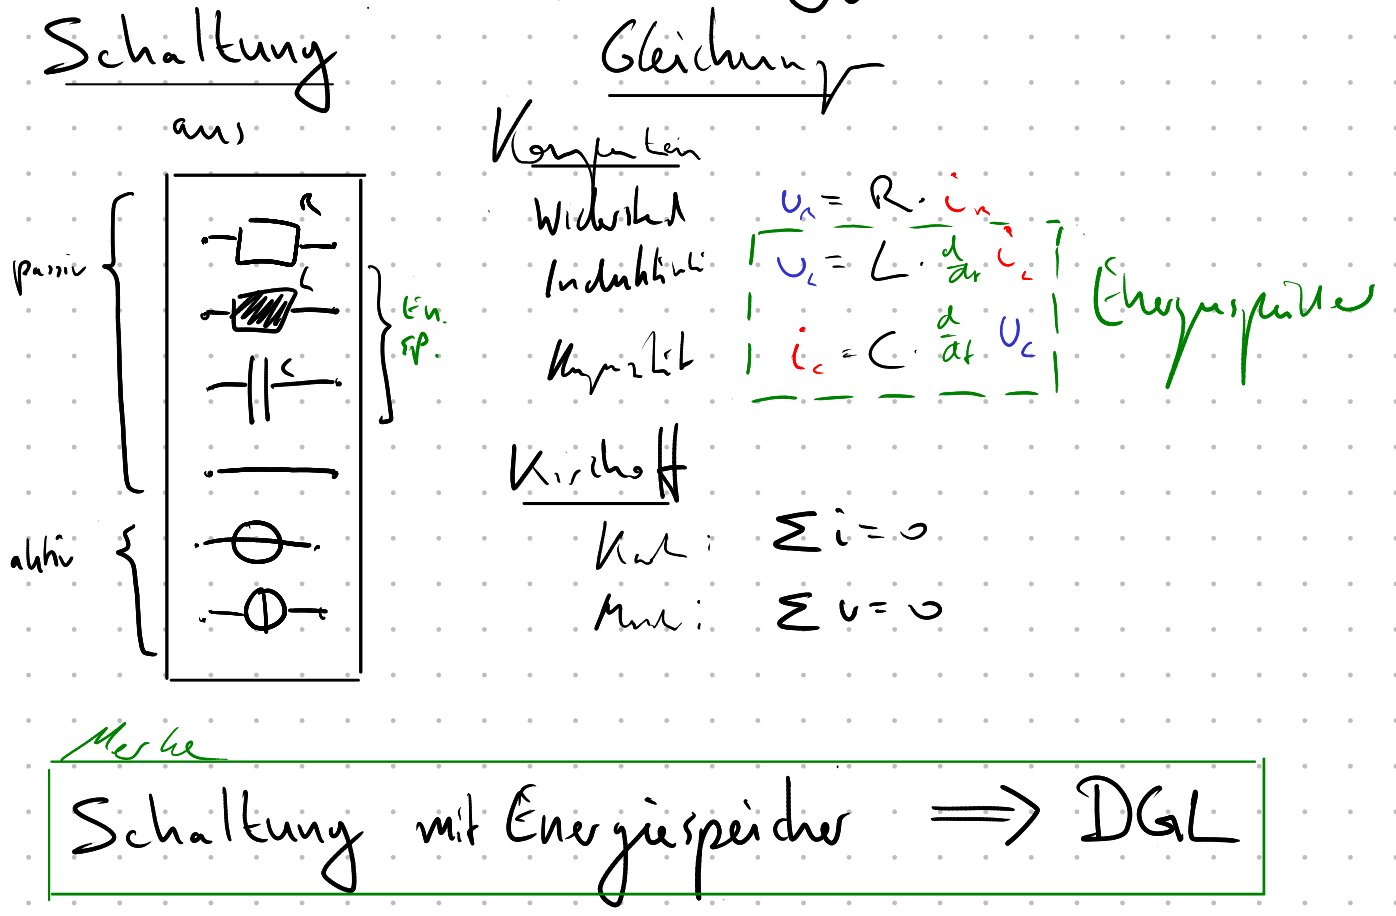 Schaltung
aus
passiv
R
L
C
En.
sp.
aktiv
Gleichung
Komponenten
Widerstand u_R = R · i_R
Induktivität u_L = L · d/dt i_L
Kapazität i_C = C · d/dt u_C
Energiespeicher
Kirchhoff
Σ i = 0
Σ u = 0
Merke
Schaltung mit Energiespeicher ⇒ DGL